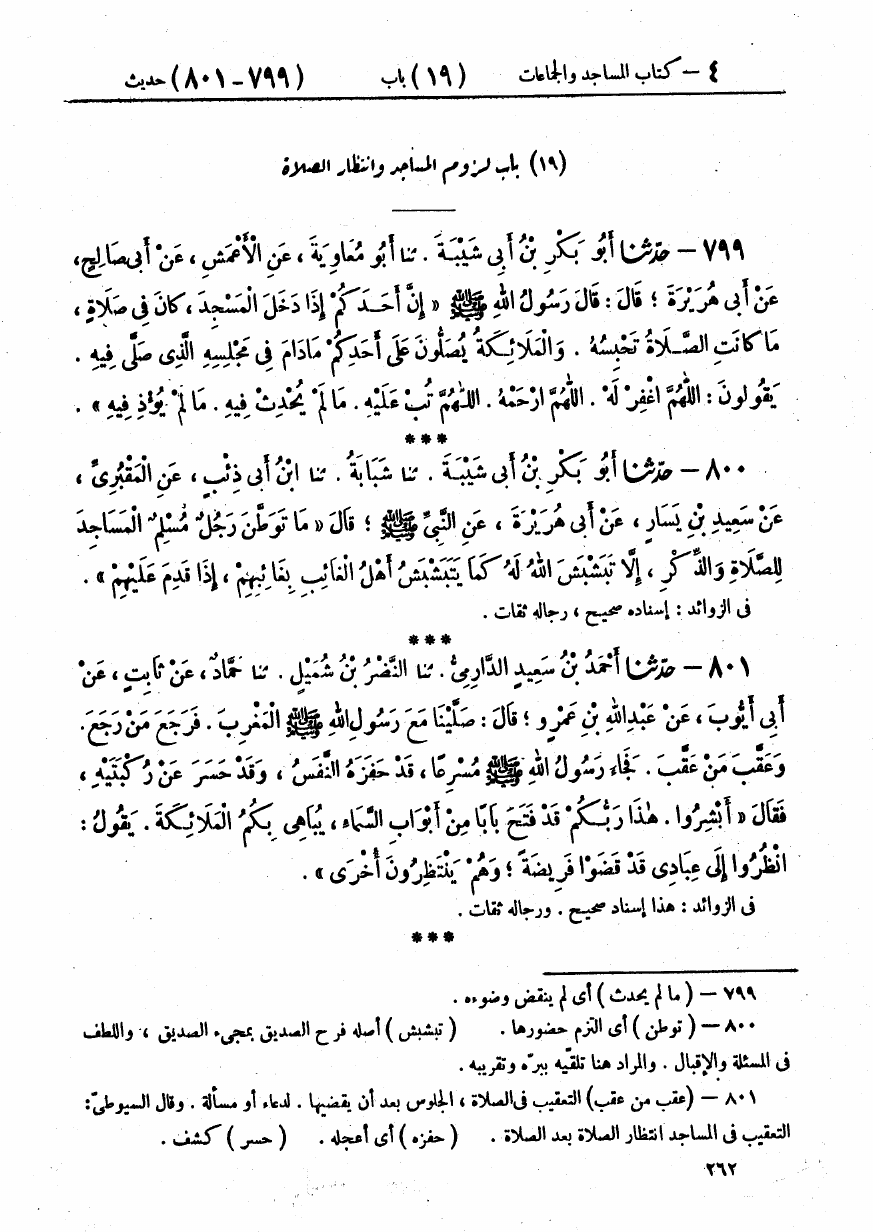 ٤ – كتاب المساجد والجماعات (١٩) باب (٧٩٩ – ٨٠١) حديث
(١٩) باب لزوم المساجد وانتظار الصلاة
٧٩٩ – حدّثنا أَبُو بَكْرِ بْنُ أَبِي شَيْبَةَ . ثنا أَبُو مُعَاوِيَةَ ، عَنِ الْأَعْمَشِ ، عَنْ أَبِي صَالِحٍ ،
عَنْ أَبِي هُرَيْرَةَ ؛ قَالَ : قَالَ رَسُولُ اللهِ ﷺ « إِنَّ أَحَدَكُمْ إِذَا دَخَلَ الْمَسْجِدَ ، كَانَ فِي صَلَاةٍ ،
مَا كَانَتِ الصَّلَاةُ تَحْبِسُهُ . وَالْمَلَائِكَةُ يُصَلُّونَ عَلَى أَحَدِكُمْ مَادَامَ فِي مَجْلِسِهِ الَّذِي صَلَّى فِيهِ .
يَقُولُونَ : اللَّهُمَّ اغْفِرْ لَهُ . اللَّهُمَّ ارْحَمْهُ . اللَّهُمَّ تُبْ عَلَيْهِ . مَا لَمْ يُحْدِثْ فِيهِ . مَا لَمْ يُؤْذِ فِيهِ » .
***
٨٠٠ – حدّثنا أَبُو بَكْرِ بْنُ أَبِي شَيْبَةَ . ثنا شَبَابَةُ . ثنا ابْنُ أَبِي ذِئْبٍ ، عَنِ الْمَقْبُرِيِّ ،
عَنْ سَعِيدِ بْنِ يَسَارٍ ، عَنْ أَبِي هُرَيْرَةَ ، عَنِ النَّبِيِّ ﷺ ؛ قَالَ « مَا تَوَطَّنَ رَجُلٌ مُسْلِمٌ الْمَسَاجِدَ
لِلصَّلَاةِ وَالذِّكْرِ ، إِلَّا تَبَشْبَشَ اللهُ لَهُ كَمَا يَتَبَشْبَشُ أَهْلُ الْغَائِبِ بِغَائِبِهِمْ ، إِذَا قَدِمَ عَلَيْهِمْ » .
فى الزوائد : إسناده صحيح ، رجاله ثقات .
***
٨٠١ – حدّثنا أَحْمَدُ بْنُ سَعِيدٍ الدَّارِمِيُّ . ثنا النَّضْرُ بْنُ شُمَيْلٍ . ثنا حَمَّادٌ ، عَنْ ثَابِتٍ ، عَنْ
أَبِي أَيُّوبَ ، عَنْ عَبْدِ اللهِ بْنِ عَمْرٍو ؛ قَالَ : صَلَّيْنَا مَعَ رَسُولِ اللهِ ﷺ الْمَغْرِبَ . فَرَجَعَ مَنْ رَجَعَ .
وَعَقَّبَ مَنْ عَقَّبَ . فَجَاءَ رَسُولُ اللهِ ﷺ مُسْرِعًا ، قَدْ حَفَزَهُ النَّفَسُ ، وَقَدْ حَسَرَ عَنْ رُكْبَتَيْهِ ،
فَقَالَ « أَبْشِرُوا . هٰذَا رَبُّكُمْ قَدْ فَتَحَ بَابًا مِنْ أَبْوَابِ السَّمَاءِ ، يُبَاهِي بِكُمُ الْمَلَائِكَةَ . يَقُولُ :
انْظُرُوا إِلَى عِبَادِي قَدْ قَضَوْا فَرِيضَةً ؛ وَهُمْ يَنْتَظِرُونَ أُخْرَى » .
فى الزوائد : هذا إسناد صحيح . ورجاله ثقات .
***
٧٩٩ – ( ما لم يحدث ) أى لم ينقض وضوءه .
٨٠٠ – ( توطن ) أى التزم حضورها . ( تبشبش ) أصله فرح الصديق بمجىء الصديق ، واللطف
فى المسئلة والإقبال . والمراد هنا تلقّيه ببرّه وتقريبه .
٨٠١ – (عقب من عقب) التعقيب فى الصلاة ، الجلوس بعد أن يقضيها . لدعاء أو مسألة . وقال السيوطىّ :
التعقيب فى المساجد انتظار الصلاة بعد الصلاة . ( حفزه ) أى أعجله . ( حسر ) كشف .
٢٦٢